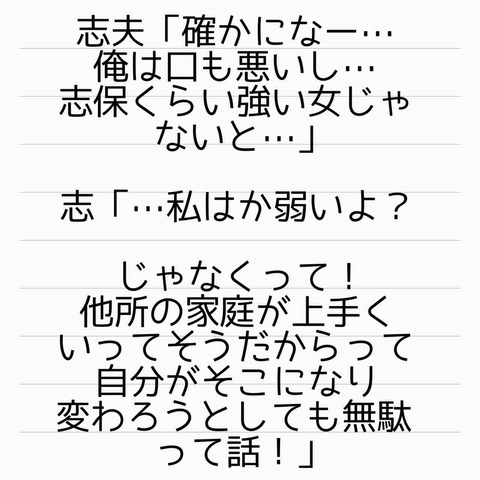 志夫「確かになー…
俺は口も悪いし…
志保くらい強い女じゃ
ないと…」
志「…私はか弱いよ？
じゃなくって！
他所の家庭が上手く
いってそうだからって
自分がそこになり
変わろうとしても無駄
って話！」